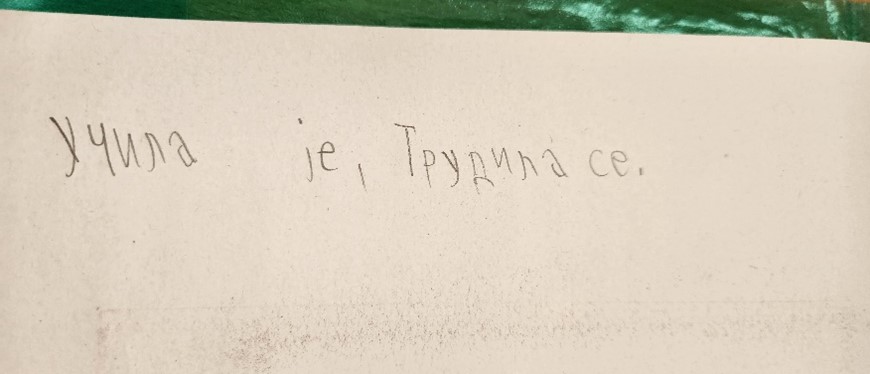 Учила је, Трудила се.